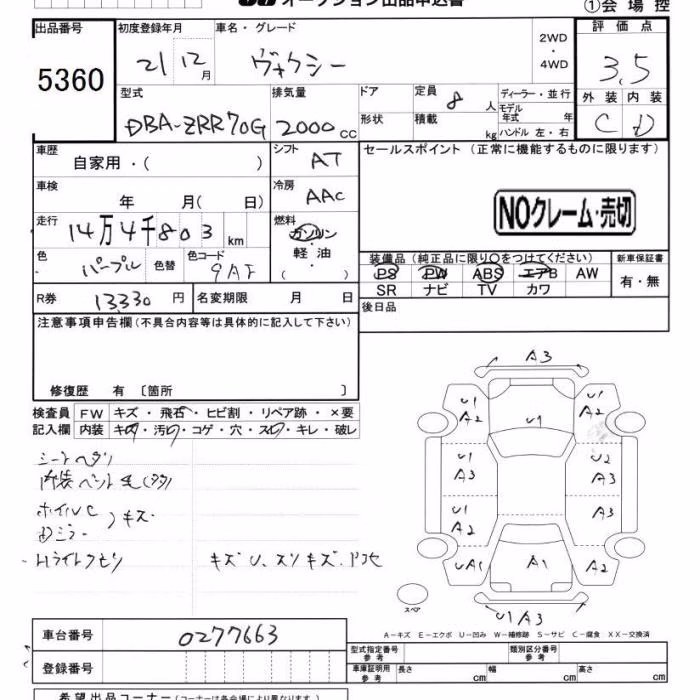 オークション出品申込書
①会場控
出品番号 初度登録年月 車名・グレード 2WD・4WD 評価点
5360 21 12月 ヴォクシー 3.5
外装 内装
C D
型式 排気量 ドア 定員 8人 ディーラー・並行
モデル年式 年
DBA-ZRR70G 2000cc 形状 積載 kg ハンドル 左・右
車歴 自家用・( ) シフト AT セールスポイント (正常に機能するものに限ります)
車検 年 月( 日) 冷房 AAC
NOクレーム・売切
走行 14万4千803km 燃料 ガソリン・軽油 ( )
色 パープル 色替 色コード 9AF
装備品 (純正品に限り○をつけてください) 新車保証書
PS PW ABS エアB AW 有・無
SR ナビ TV カワ
R券 13330円 名変期限 月 日
後日品
注意事項申告欄(不具合内容等は具体的に記入して下さい)
修復歴 有 〔箇所 〕
検査員 FW キズ・飛石・ヒビ割・リペア跡・×要
記入欄 内装 キズ・汚れ・コゲ・穴・スレ・キレ・破レ
シートヘタリ
ホイルC
Dミラー
キズ
Hライトクモリ
A3
U1 A2 U1 U1 A2
U1 A3 U2 A3
U1 A2 A3
UA1 A1 A2
U1 A3
スペア
A-キズ E-エクボ U-凹み W-補修跡 S-サビ C-腐食 XX-交換済
車台番号 0277663
登録番号
型式指定番号 参考 類別区分番号 参考
車庫証明用 参考 長さ cm 幅 cm 高さ cm
希望出品コーナー (コーナーは各会場により異なります。)